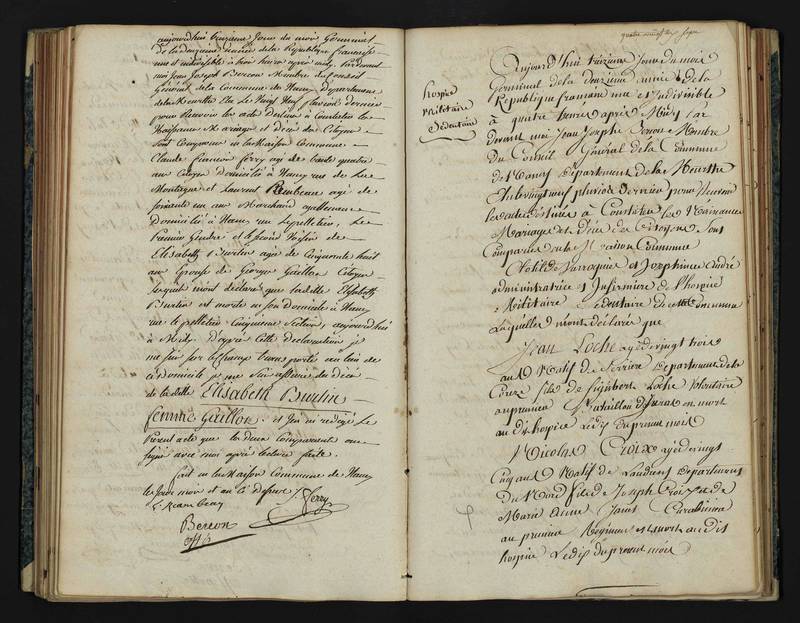 aujourdhui treizieme Jour du mois Germinal
de la deuxieme année de la Republique francaise
une et indivisible à trois heures après midy, Pardevant
moi Jean Joseph Membre du Conseil
Général de la Commune de Nancy Departement
de la Meurthe Elu Le Vingt Neuf pluviose dernier
pour Recevoir les actes destinés à Constater les
Naissances Mariages et Décès des Citoyens
Sont Comparus en la Maison Commune
Claude francois ferry agé de trente quatre
ans Citoyen domicilié à Nancy rue de La
Montagne et Laurent Rambeau agé de
soixante un ans Marchand également
domicilié à Nancy rue Lepelletier, Le
Premier Gendre et le second Voisin de
Elisabeth Burtin agée de Cinquante huit
ans Epouse de Georges Gaillon Citoyen
Lesquels m'ont declaré que ladite Elisabeth
Burtin est morte en son domicile à Nancy
rue le pelletier Cinquieme Section, aujourdhui
à Midy. d'après cette declaration je
me suis sur le champ transporté au lieu de
ce domicile je me suis assuré du décès
de la ditte Elisabeth Burtin
femme Gaillon. et j'en ai redigé Le
Present acte que les deux Comparents ont
signé avec moi après lecture faite.
fait en la Maison Commune de Nancy
les Jour mois et an Ci dessus
Ferry
off. p.
quatre vingt dix sept
hospice
Militaire
Sédentaire
Aujourd'hui treizieme Jour du mois
Germinal de la deuxieme année de la
République francaise une et Indivisible
à quatre heures après Midy Par
devant moi Jean Joseph Membre
du Conseil Général de la Commune
de Nancy Département de la Meurthe
Elu le vingt neuf pluviose dernier pour Recevoir
les actes destinés à Constater les Naissances
Mariages et les Décès des Citoyens Sont
Comparues en la Maison Commune
Clotilde et Josephine André
administratrice et Infirmiere de l'hospice
Militaire Sédentaire de cette Commune
Lesquelles m'ont declarées que
Jean Loche agé de vingt trois
ans Natif de Departement de la
Correze fils de Loche Volontaire
au premier Bataillon est mort
au dit hospice Le dix du présent mois
Nicolas Croix agé de vingt
Cinq ans Natif de Departement
du Nord fils de Joseph Croix et de
Marie Anne Carabinier
au premier Régiment est mort au dit
hospice Le dix du présent mois